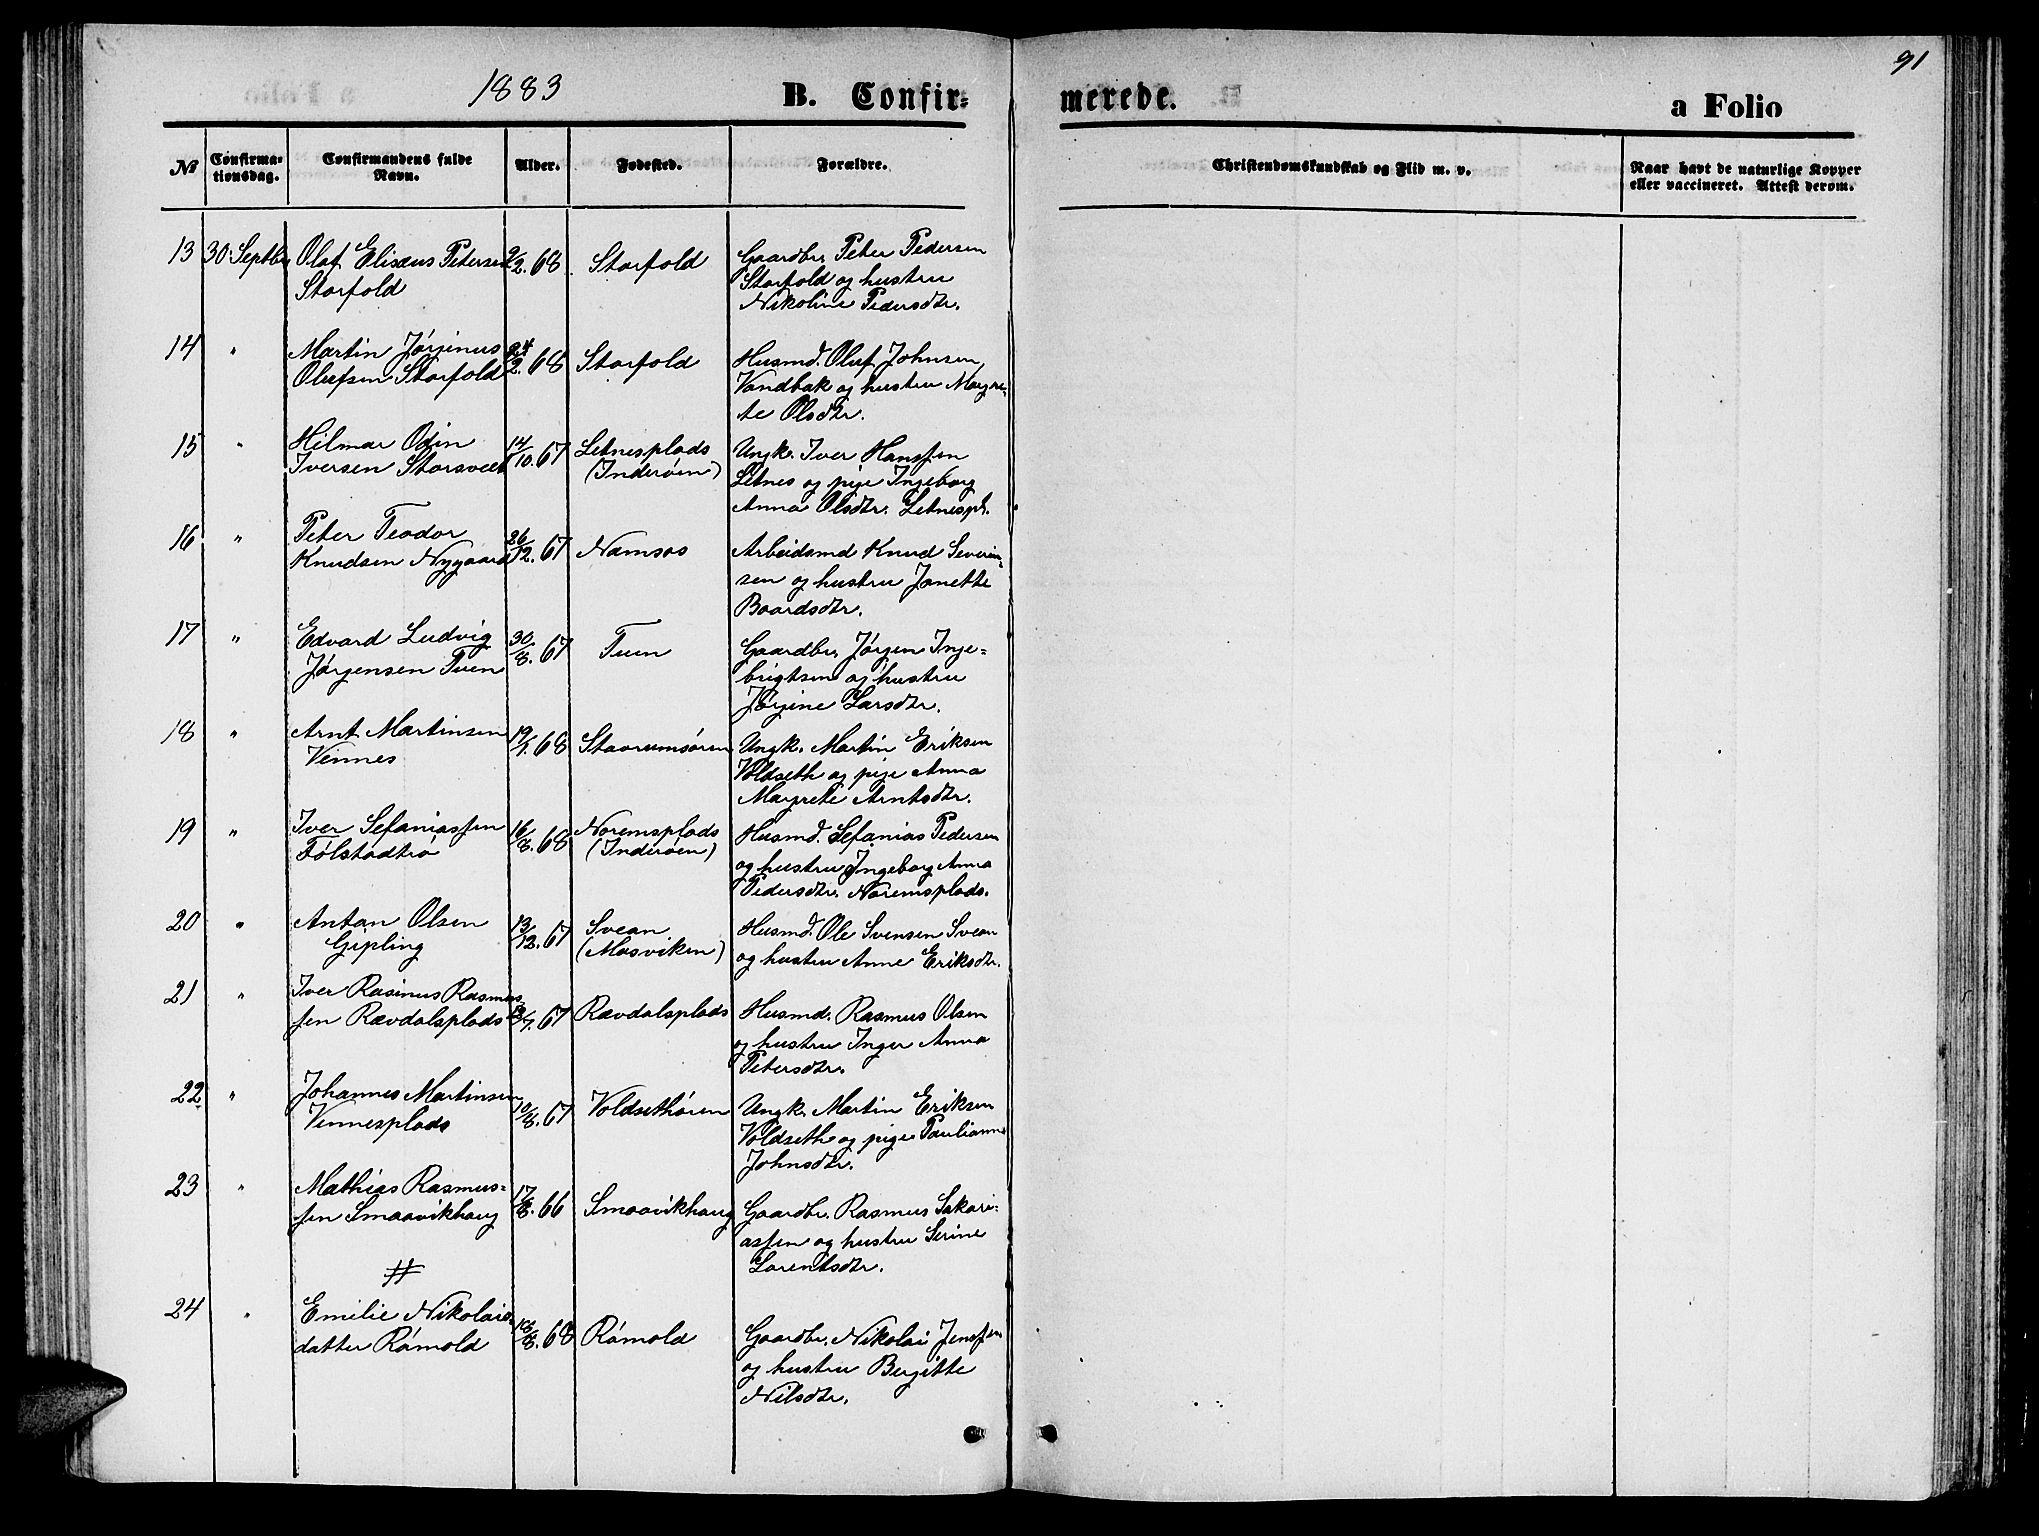 91
1883 B. Confir= merede. a Folio
№ Confirma-tionsdag. Confirmandens fulde Navn. Alder. Fødested. Forældre. Christendomskundskab og Flid m. v. Naar havt de naturlige Kopper eller vaccineret. Attest derom.
13 30 Septbr Olaf Elisæus Petersen 9/2. 68 Storfold Gaardbr. Peter Pedersen
Storfold Storfold og hustru
Nikoline Pedersdtr.
14 " Martin Jørginus 24/2. 68 Storfold Husmd. Oluf Johnsen
Olufsen Storfold Vandbak og hustru Margre-
te Olsdtr.
15 " Hilmar Odin 14/10. 67 Letnesplads Ungk. Iver Hanssen
Iversen Storsveet (Inderøen) Letnes og pige Ingeborg
Anna Olsdtr. Letnespl.
16 " Peter Teodor 26/12. 67 Namsos Arbeidsmd Knud Severin=
Knudsen Nygaard sen og hustru Janette
Baardsdtr.
17 " Edvard Ludvig 30/8. 67 Tuen Gaardbr. Jørgen Inge=
Jørgensen Tuen brigtsen og hustru
Jørgine Larsdtr.
18 " Arnt Martinsen 19/1. 68 Staarumsøren Ungk. Martin Eriksen
Vennes Voldseth og pige Anna
Margrete Arntsdtr.
19 " Iver Sefaniassen 16/8. 68 Noremsplads Husmd. Sefanias Pedersen
Følstadtrø (Inderøen) og hustru Ingeborg Anna
Pedersdtr. Noremsplads.
20 " Anton Olsen 13/12. 67 Svean Husmd. Ole Svensen Svean
Gipling (Mosviken) og hustru Anne Eriksdtr.
21 " Iver Rasinus Rasmus 67 Rævdalsplads Husmd. Rasmus Olsen
sen Rævdalsplads og hustru Inger Anna
Petersdtr.
22 " Johannes Martinsen 10/8. 67 Voldsethøren Ungk. Martin Eriksen
Vennesplads Voldseth og pige Paulianna
Johnsdtr.
23 " Mathias Rasmus= 17/8. 66 Smaavikhaug Gaardbr. Rasmus Sakari=
sen Smaavikhaug assen og hustru Serine
Lorentsdtr.
24 " Emilie Nikolais 18/8. 68 Rømold Gaardbr. Nikolai Jenssen
datter Rømold og hustru Bergitte
Nilsdtr.